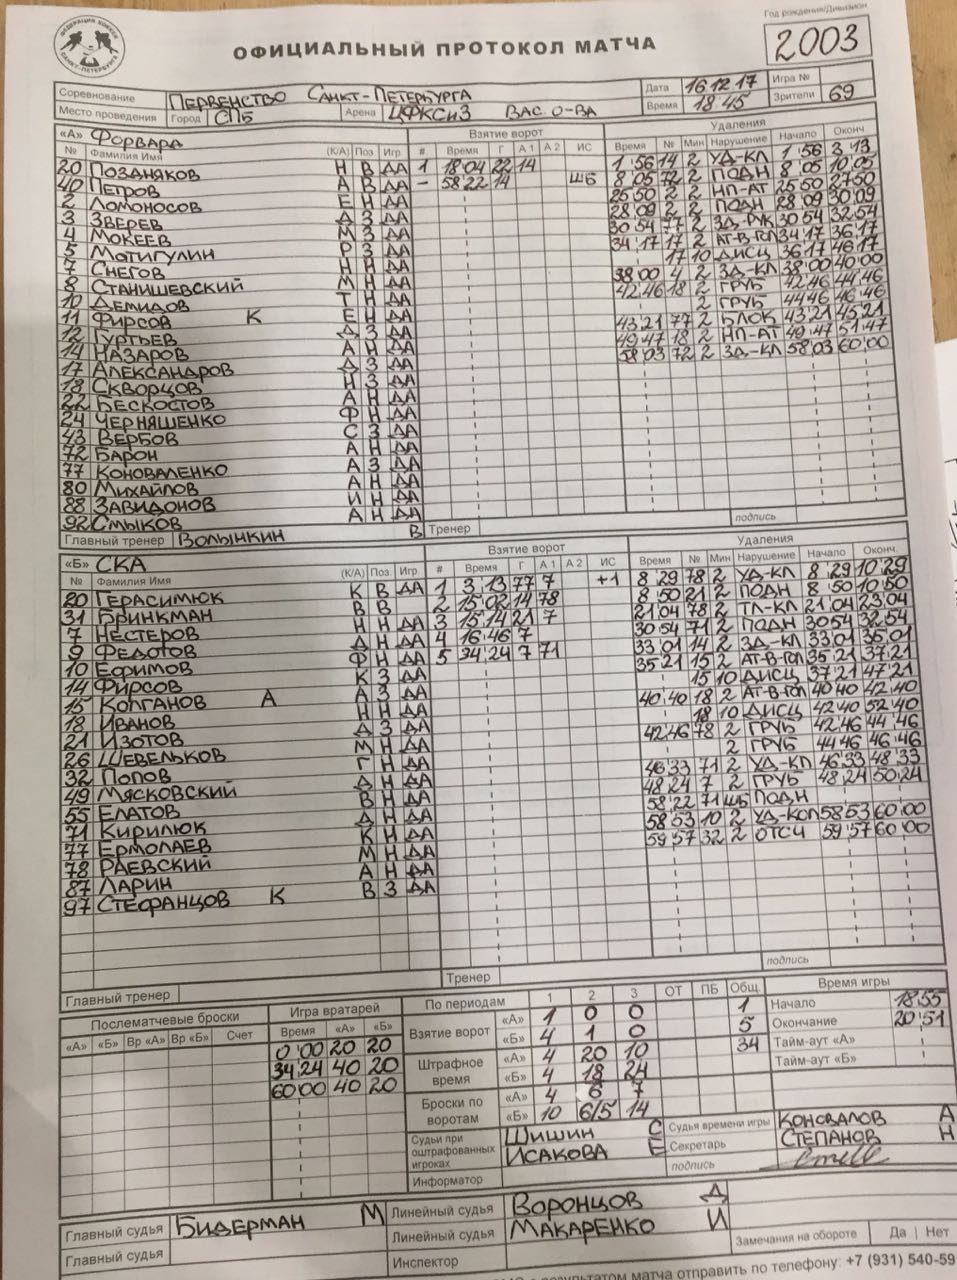 ФЕДЕРАЦИЯ ХОККЕЯ САНКТ-ПЕТЕРБУРГА
ОФИЦИАЛЬНЫЙ ПРОТОКОЛ МАТЧА
Год рождения/Дивизион
2003
Соревнование ПЕРВЕНСТВО САНКТ-ПЕТЕРБУРГА Дата 16 12 17 Игра №
Место проведения Город СПБ Арена ЦФКСиЗ ВАС. О-ВА Время 18 45 Зрители 69
«А» ФОРВАРД Взятие ворот Удаления
№ Фамилия Имя (К/А) Поз Игр # Время Г А1 А2 ИС Время № Мин Нарушение Начало Оконч.
20 ПОЗДНЯКОВ Н В ДА 1 18 04 22 14 1 56 14 2 УД-КЛ 1 56 3 13
40 ПЕТРОВ А В ДА - 58 22 14 ШБ 8 05 72 2 ПОДН 8 05 10 05
2 ЛОМОНОСОВ Е Н ДА 25 50 2 2 НП-АТ 25 50 27 50
3 ЗВЕРЕВ Д З ДА 28 09 2 2 ПОДН 28 09 30 09
4 МОКЕЕВ М З ДА 30 54 77 2 ЗД-РУК 30 54 32 54
5 МАТИГУЛИН Р З ДА 34 17 17 2 АТ-В-ГОЛ 34 17 36 17
7 СНЕГОВ Н Н ДА 17 10 ДИСЦ 36 17 46 17
8 СТАНИШЕВСКИЙ М Н ДА 38 00 4 2 ЗД-КЛ 38 00 40 00
10 ДЕМИДОВ Т Н ДА 42 46 18 2 ГРУБ 42 46 44 46
11 ФИРСОВ К Е Н ДА 2 ГРУБ 44 46 46 46
12 ГУРТЬЕВ Д З ДА 43 21 77 2 БЛОК 43 21 45 21
14 НАЗАРОВ А Н ДА 49 47 18 2 НП-АТ 49 47 51 47
17 АЛЕКСАНДРОВ Д З ДА 58 03 72 2 ЗД-КЛ 58 03 60 00
18 СКВОРЦОВ Н З ДА
22 БЕСКОСТОВ А Н ДА
24 ЧЕРНЯШЕНКО Ф Н ДА
43 ВЕРБОВ С З ДА
72 БАРОН А Н ДА
77 КОНОВАЛЕНКО А З ДА
80 МИХАЙЛОВ А Н ДА
88 ЗАВИДОНОВ И Н ДА
92 СМЫКОВ А Н ДА
Главный тренер ВОЛЫНКИН В Тренер подпись
«Б» СКА Взятие ворот Удаления
№ Фамилия Имя (К/А) Поз. Игр. # Время Г А1 А2 ИС Время № Мин Нарушение Начало Оконч.
20 ГЕРАСИМЮК К В ДА 1 3 13 77 7 +1 8 29 78 2 УД-КЛ 8 29 10 29
31 БРИНКМАН В В 2 15 02 14 78 8 50 21 2 ПОДН 8 50 10 50
7 НЕСТЕРОВ Н Н ДА 3 15 14 21 7 21 04 78 2 ТЛ-КЛ 21 04 23 04
9 ФЕДОТОВ Д Н ДА 4 16 46 7 30 54 71 2 ПОДН 30 54 32 54
10 ЕФИМОВ Ф Н ДА 5 34 24 7 71 33 01 14 2 ЗД-КЛ 33 01 35 01
14 ФИРСОВ К З ДА 35 21 15 2 АТ-В-ГОЛ 35 21 37 21
15 КОЛГАНОВ А А З ДА 15 10 ДИСЦ 37 21 47 21
18 ИВАНОВ Н Н ДА 40 40 18 2 АТ-В-ГОЛ 40 40 42 40
21 ИЗОТОВ Д З ДА 18 10 ДИСЦ 42 40 52 40
26 ШЕВЕЛЬКОВ М Н ДА 42 46 78 2 ГРУБ 42 46 44 46
32 ПОПОВ Г Н ДА 2 ГРУБ 44 46 46 46
49 МЯСКОВСКИЙ Д Н ДА 46 33 71 2 УД-КЛ 46 33 48 33
55 ЕЛАТОВ В Н ДА 48 24 7 2 ГРУБ 48 24 50 24
71 КИРИЛЮК Д Н ДА 58 22 71 ШБ ПОДН
77 ЕРМОЛАЕВ К Н ДА 58 53 10 2 УД-КОЛ 58 53 60 00
78 РАЕВСКИЙ М Н ДА 59 57 32 2 ОТСЧ 59 57 60 00
87 ЛАРИН А Н ДА
97 СТЕФАНЦОВ К В З ДА
Главный тренер Тренер подпись
Послематчевые броски Игра вратарей По периодам 1 2 3 ОТ ПБ Общ. Время игры
«А» «Б» Вр «А» Вр «Б» Счет Время «А» «Б» Взятие ворот «А» 1 0 0 1 Начало 18 55
0 00 20 20 «Б» 4 1 0 5 Окончание 20 51
34 24 40 20 Штрафное время «А» 4 20 10 34 Тайм-аут «А»
60 00 40 20 «Б» 4 18 24 Тайм-аут «Б»
Броски по воротам «А» 4 6 7
«Б» 10 6/5 14
Судьи при оштрафованных игроках ШИШИН С Судья времени игры КОНОВАЛОВ А
ИСАКОВА Е Секретарь СТЕПАНОВ Н
Информатор подпись
Главный судья БИДЕРМАН М Линейный судья ВОРОНЦОВ Д
Главный судья Линейный судья МАКАРЕНКО И
Инспектор Замечания на обороте Да | Нет
результатом матча отправить по телефону: +7 (931) 540-59